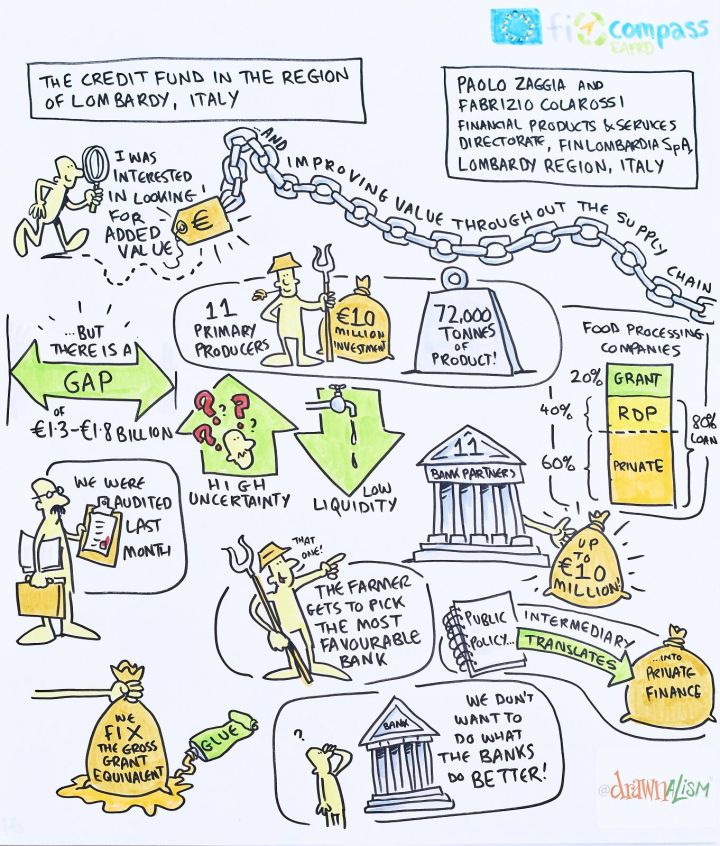 fi compass
EAFRD
THE CREDIT FUND IN THE REGION
OF LOMBARDY, ITALY
PAOLO ZAGGIA AND
FABRIZIO COLAROSSI
FINANCIAL PRODUCTS & SERVICES
DIRECTORATE, FINLOMBARDIA SpA,
LOMBARDY REGION, ITALY
I WAS
INTERESTED
IN LOOKING
FOR
ADDED
VALUE
€
...AND IMPROVING VALUE THROUGHOUT THE SUPPLY CHAIN
11
PRIMARY
PRODUCERS
€10
MILLION
INVESTMENT
72,000
TONNES
OF
PRODUCT!
...BUT
THERE IS A
GAP
OF
€1.3-€1.8 BILLION
? ? ? ?
HIGH
UNCERTAINTY
LOW
LIQUIDITY
FOOD PROCESSING
COMPANIES
20% GRANT
40% RDP
80%
LOAN
60% PRIVATE
11
BANK PARTNERS
UP
TO
€10
MILLION!
WE WERE
AUDITED
LAST
MONTH
THAT
ONE!
THE FARMER
GETS TO PICK
THE MOST
FAVOURABLE
BANK
PUBLIC
POLICY...
INTERMEDIARY
TRANSLATES
...INTO
PRIVATE
FINANCE
WE
FIX
THE GROSS
GRANT
EQUIVALENT
GLUE
?
BANK
WE DON'T
WANT TO
DO WHAT
THE BANKS
DO BETTER!
@drawnalism